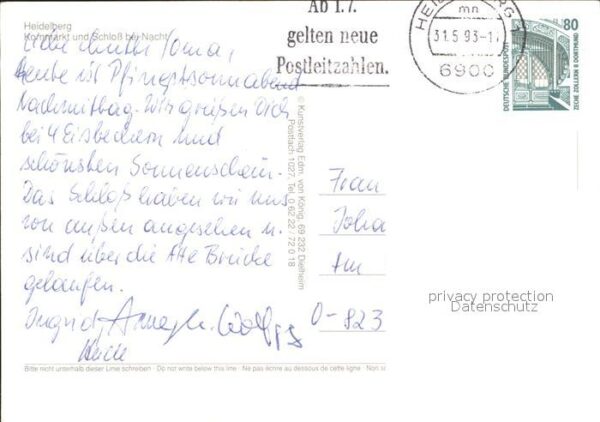 Heidelberg
Kornmarkt und Schloß bei Nacht
Liebe Mutter, Oma,
heute ist Pfingstsonnabend
Nachmittag. Wir grüßen Dich
bei 4 Eisbechern und
schönsten Sonnenschein.
Das Schloß haben wir uns
von außen angesehen u.
sind über die Alte Brücke
gelaufen.
Ingrid, Wolfgg
Bitte nicht unterhalb dieser Linie schreiben · Do not write below this line · Ne pas écrire au dessous de cette ligne · Non
© Kunstverlag Edm. von König, 69 232 Dielheim
Postfach 1027, Tel. 0 62 22 / 72 0 18
Ab 1.7.
gelten neue
Postleitzahlen.
HEIDELBERG
mn
31.5.93-1
6900
80
DEUTSCHE BUNDESPOST
ZECHE ZOLLERN II DORTMUND
Frau
Joha
Am
O-823
privacy protection
Datenschutz